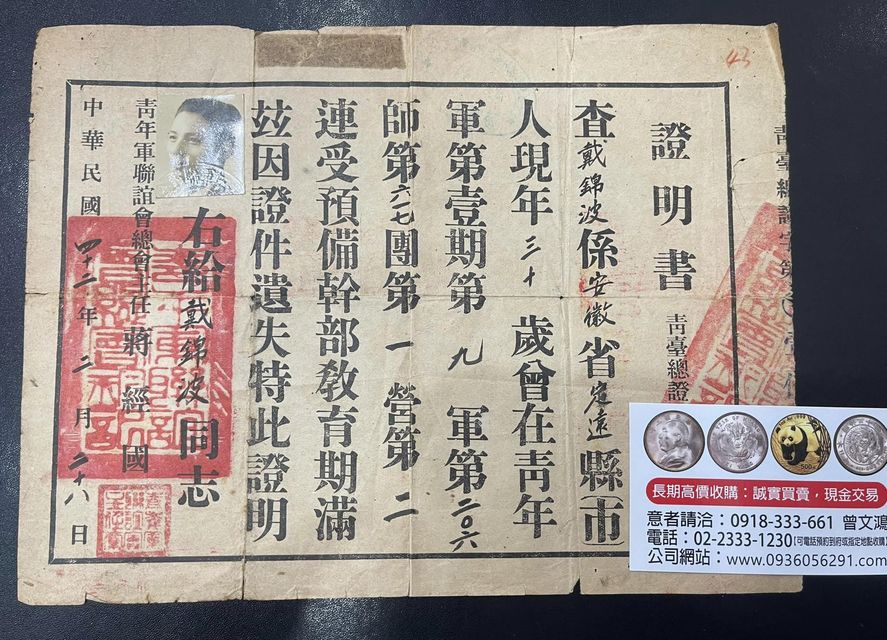 證明書
青臺總證
查戴錦波係安徽省定遠縣市
人現年三十歲曾在青年
軍第壹期第九軍第二〇六
師第六七團第一營第二
連受預備幹部教育期滿
茲因證件遺失特此證明
右給戴錦波同志
青年軍聯誼會總會主任蔣經國
中華民國四十二年二月二十八日
43
長期高價收購：誠實買賣，現金交易
意者請洽：0918-333-661 曾文鴻
電話：02-2333-1230【可電話預約到府或指定地點收購】
公司網站：www.0936056291.com